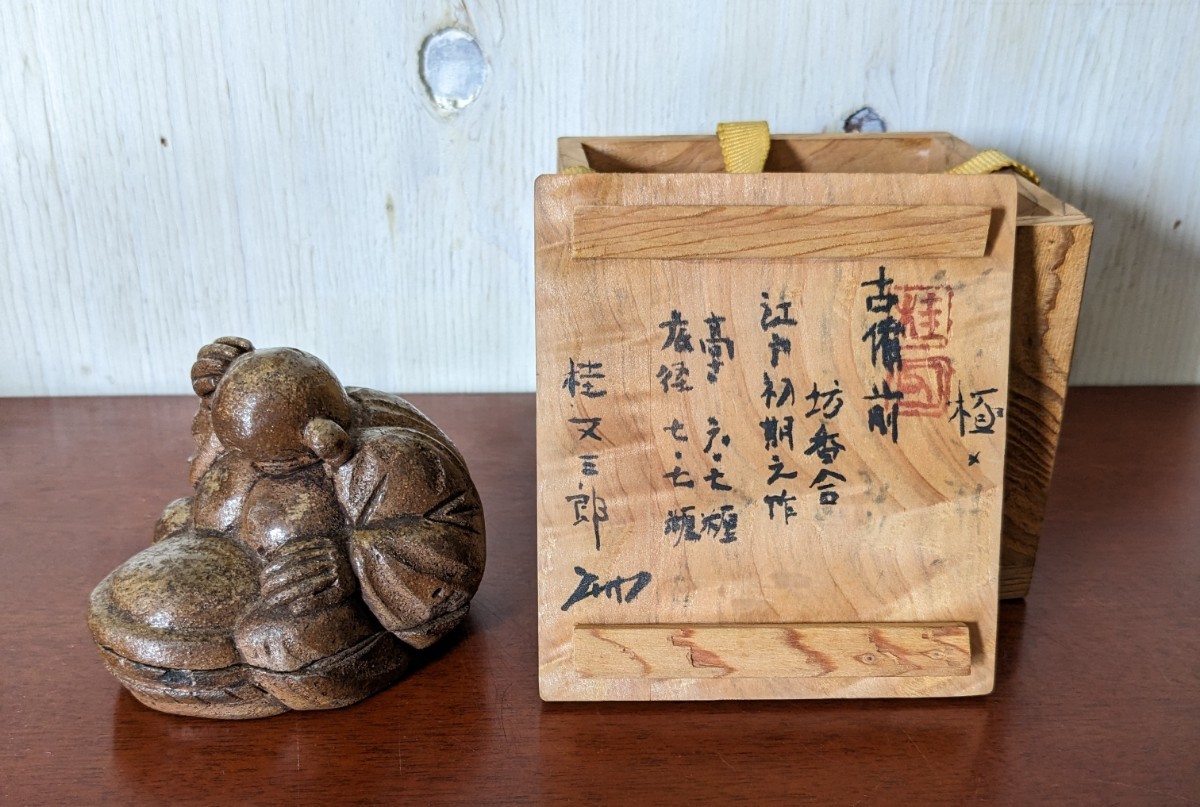 極メ
古備前
坊香合
江戸初期之作
高サ 六・七糎
底径 七・七糎
桂又三郎
桂